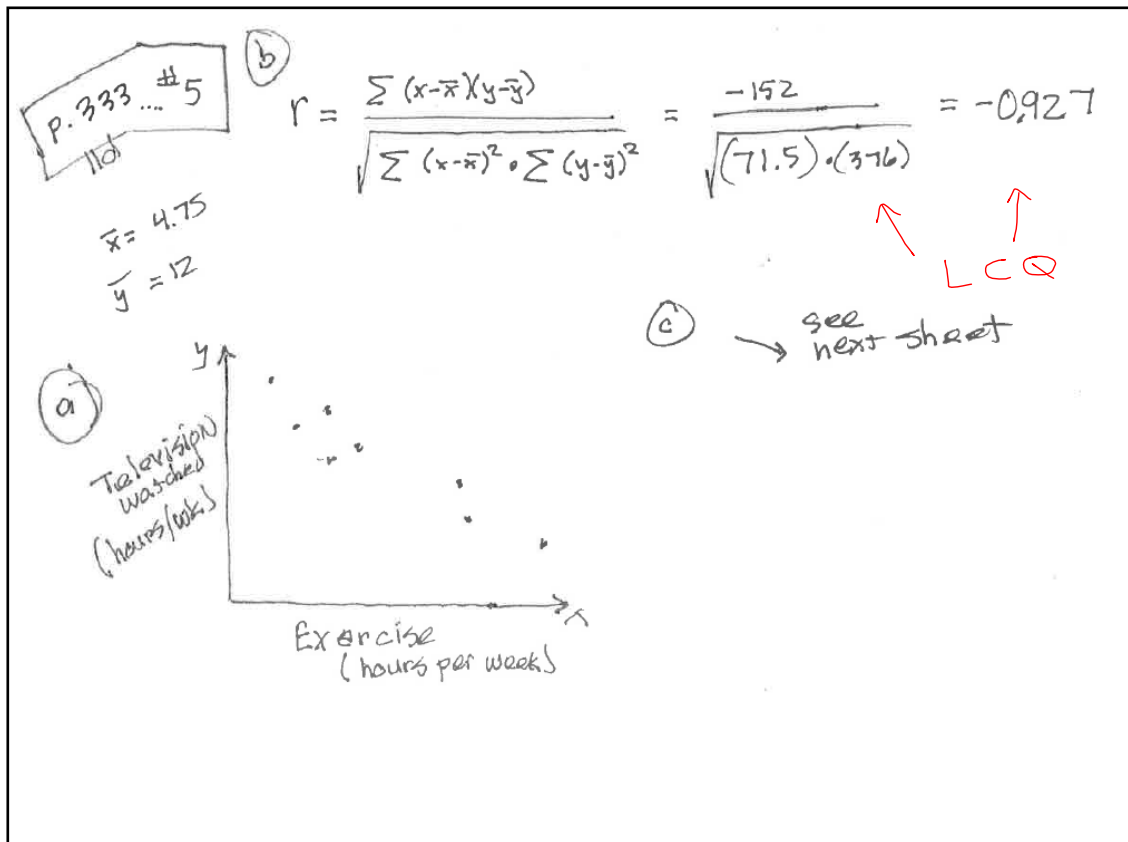 p. 333 .... #5
b
r = Σ (x-x̄)(y-ȳ) / √Σ (x-x̄)² • Σ (y-ȳ)² = -152 / √(71.5) • (376) = -0.927
x̄ = 4.75
ȳ = 12
L C Q
c → see
next sheet
a
y
Television
watched
(hours/wk.)
x
Exercise
(hours per week)